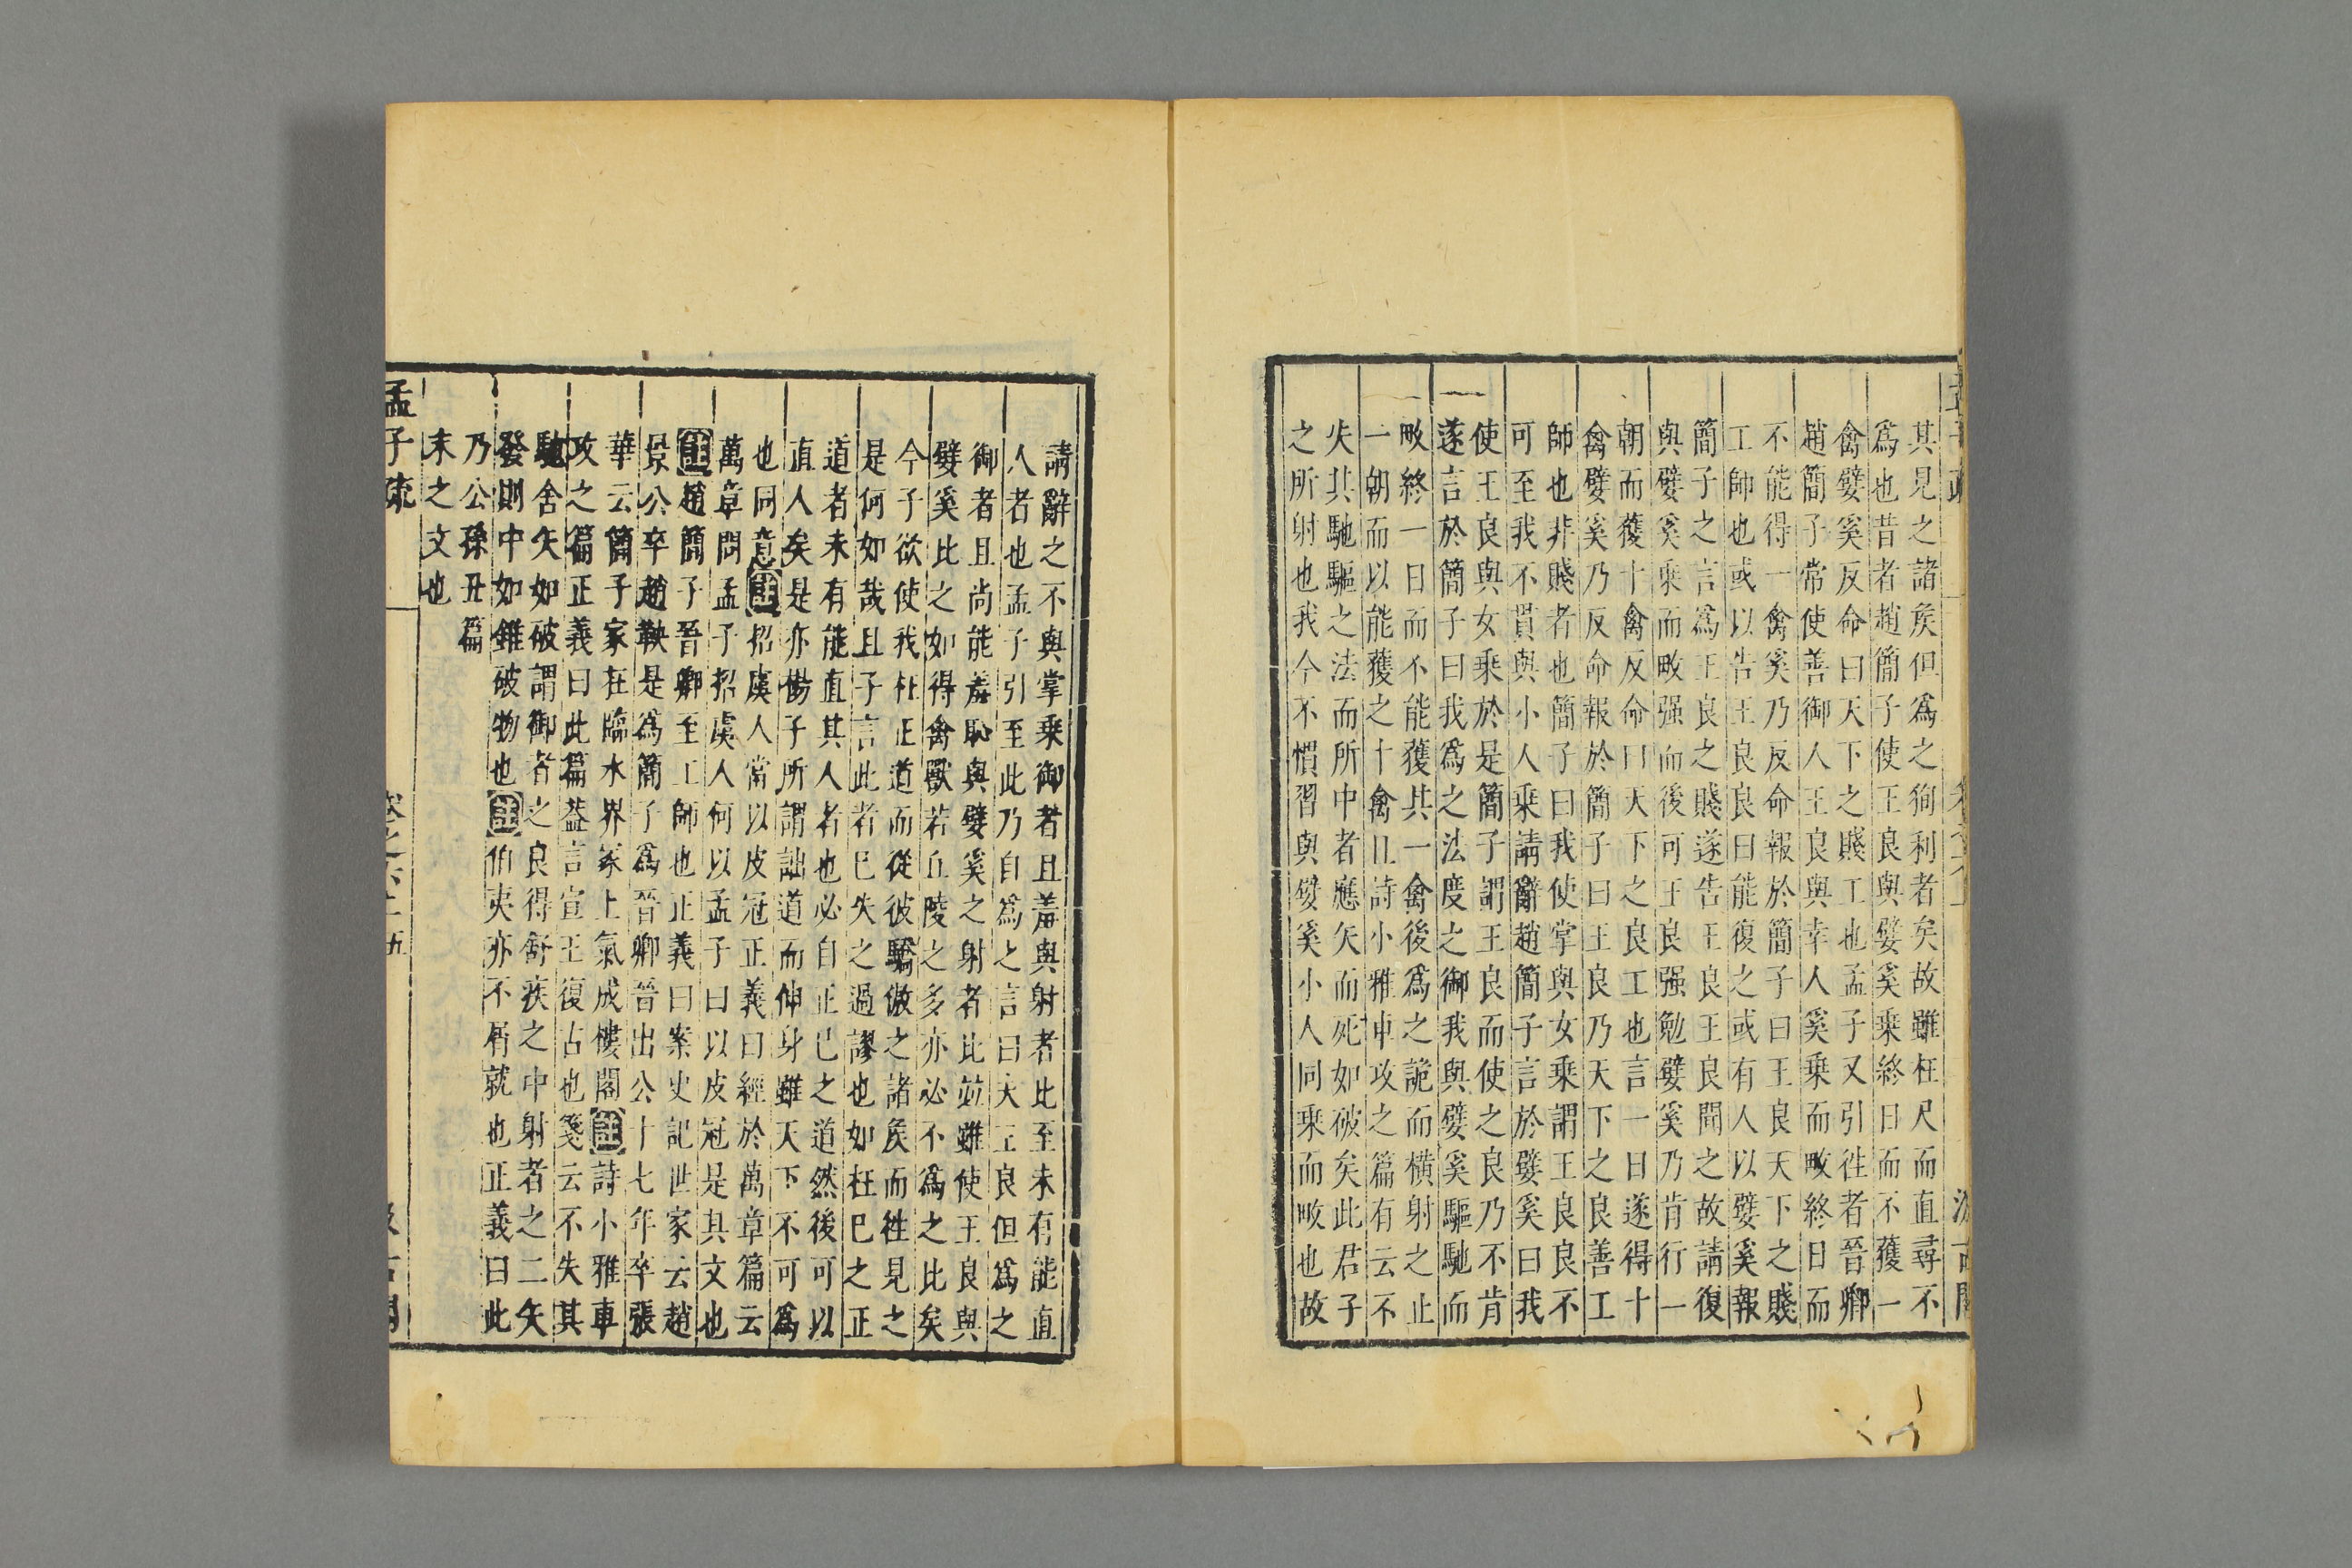 其見之諸矦但爲之狥利者矣故雖枉尺而直尋不
爲也昔者趙簡子使王良與嬖奚乗終日而不獲一
禽嬖奚反命曰天下之賤工也孟子又引徃者晉卿
趙簡子常使善御人王良與幸人奚乗而畋終日而
不能得一禽奚乃反命報於簡子曰王良天下之賤
工師也或以告王良良曰能復之或有人以嬖奚報
簡子之言爲王良之賤遂告王良王良聞之故請復
與嬖奚乗而畋强而後可王良强勉嬖奚乃肯行一
朝而獲十禽反命曰天下之良工也言一日遂得十
禽嬖奚乃反命報於簡子曰王良乃天下之良善工
師也非賤者也簡子曰我使掌與女乗謂王良良不
可至我不貫與小人乗請辭趙簡子言於嬖奚曰我
使王良與女乗於是簡子謂王良而使之良乃不肯
遂言於簡子曰我爲之法度之御我與嬖奚驅馳而
畋終一日而不能獲其一禽後爲之詭而橫射之止
一朝而以能獲之十禽且詩小雅車攻之篇有云不
失其馳驅之法而所中者應矢而死如破矣此君子
之所射也我今不慣習與嬖奚小人同乗而畋也故
請辭之不與掌乗御者且羞與射者比至未有能直
人者也孟子引至此乃自爲之言曰夫王良但爲之
御者且尚能羞恥與嬖奚之射者比並雖使王良與
嬖奚比之如得禽獸若丘陵之多亦必不爲之比矣
今子欲使我枉正道而從彼驕傲之諸矦而徃見之
是何如哉且子言此者已失之過謬也如枉已之正
道者未有能直其人者也必自正已之道然後可以
直人矣是亦楊子所謂詘道而伸身雖天下不可爲
也同意註招虞人當以皮冠正義曰經於萬章篇云
萬章問孟子招虞人何以孟子曰以皮冠是其文也
註趙簡子晉卿至工師也正義曰案史記世家云趙
景公卒趙鞅是爲簡子爲晉卿晉出公十七年卒張
華云簡子家在臨水界冢上氣成樓閣註詩小雅車
攻之篇正義曰此篇葢言宣王復古也箋云不失其
馳舍矢如破謂御者之良得舒疾之中射者之二矢
發則中如錐破物也註伯夷亦不屑就也正義曰此
乃公孫丑篇
末之文也
孟子疏